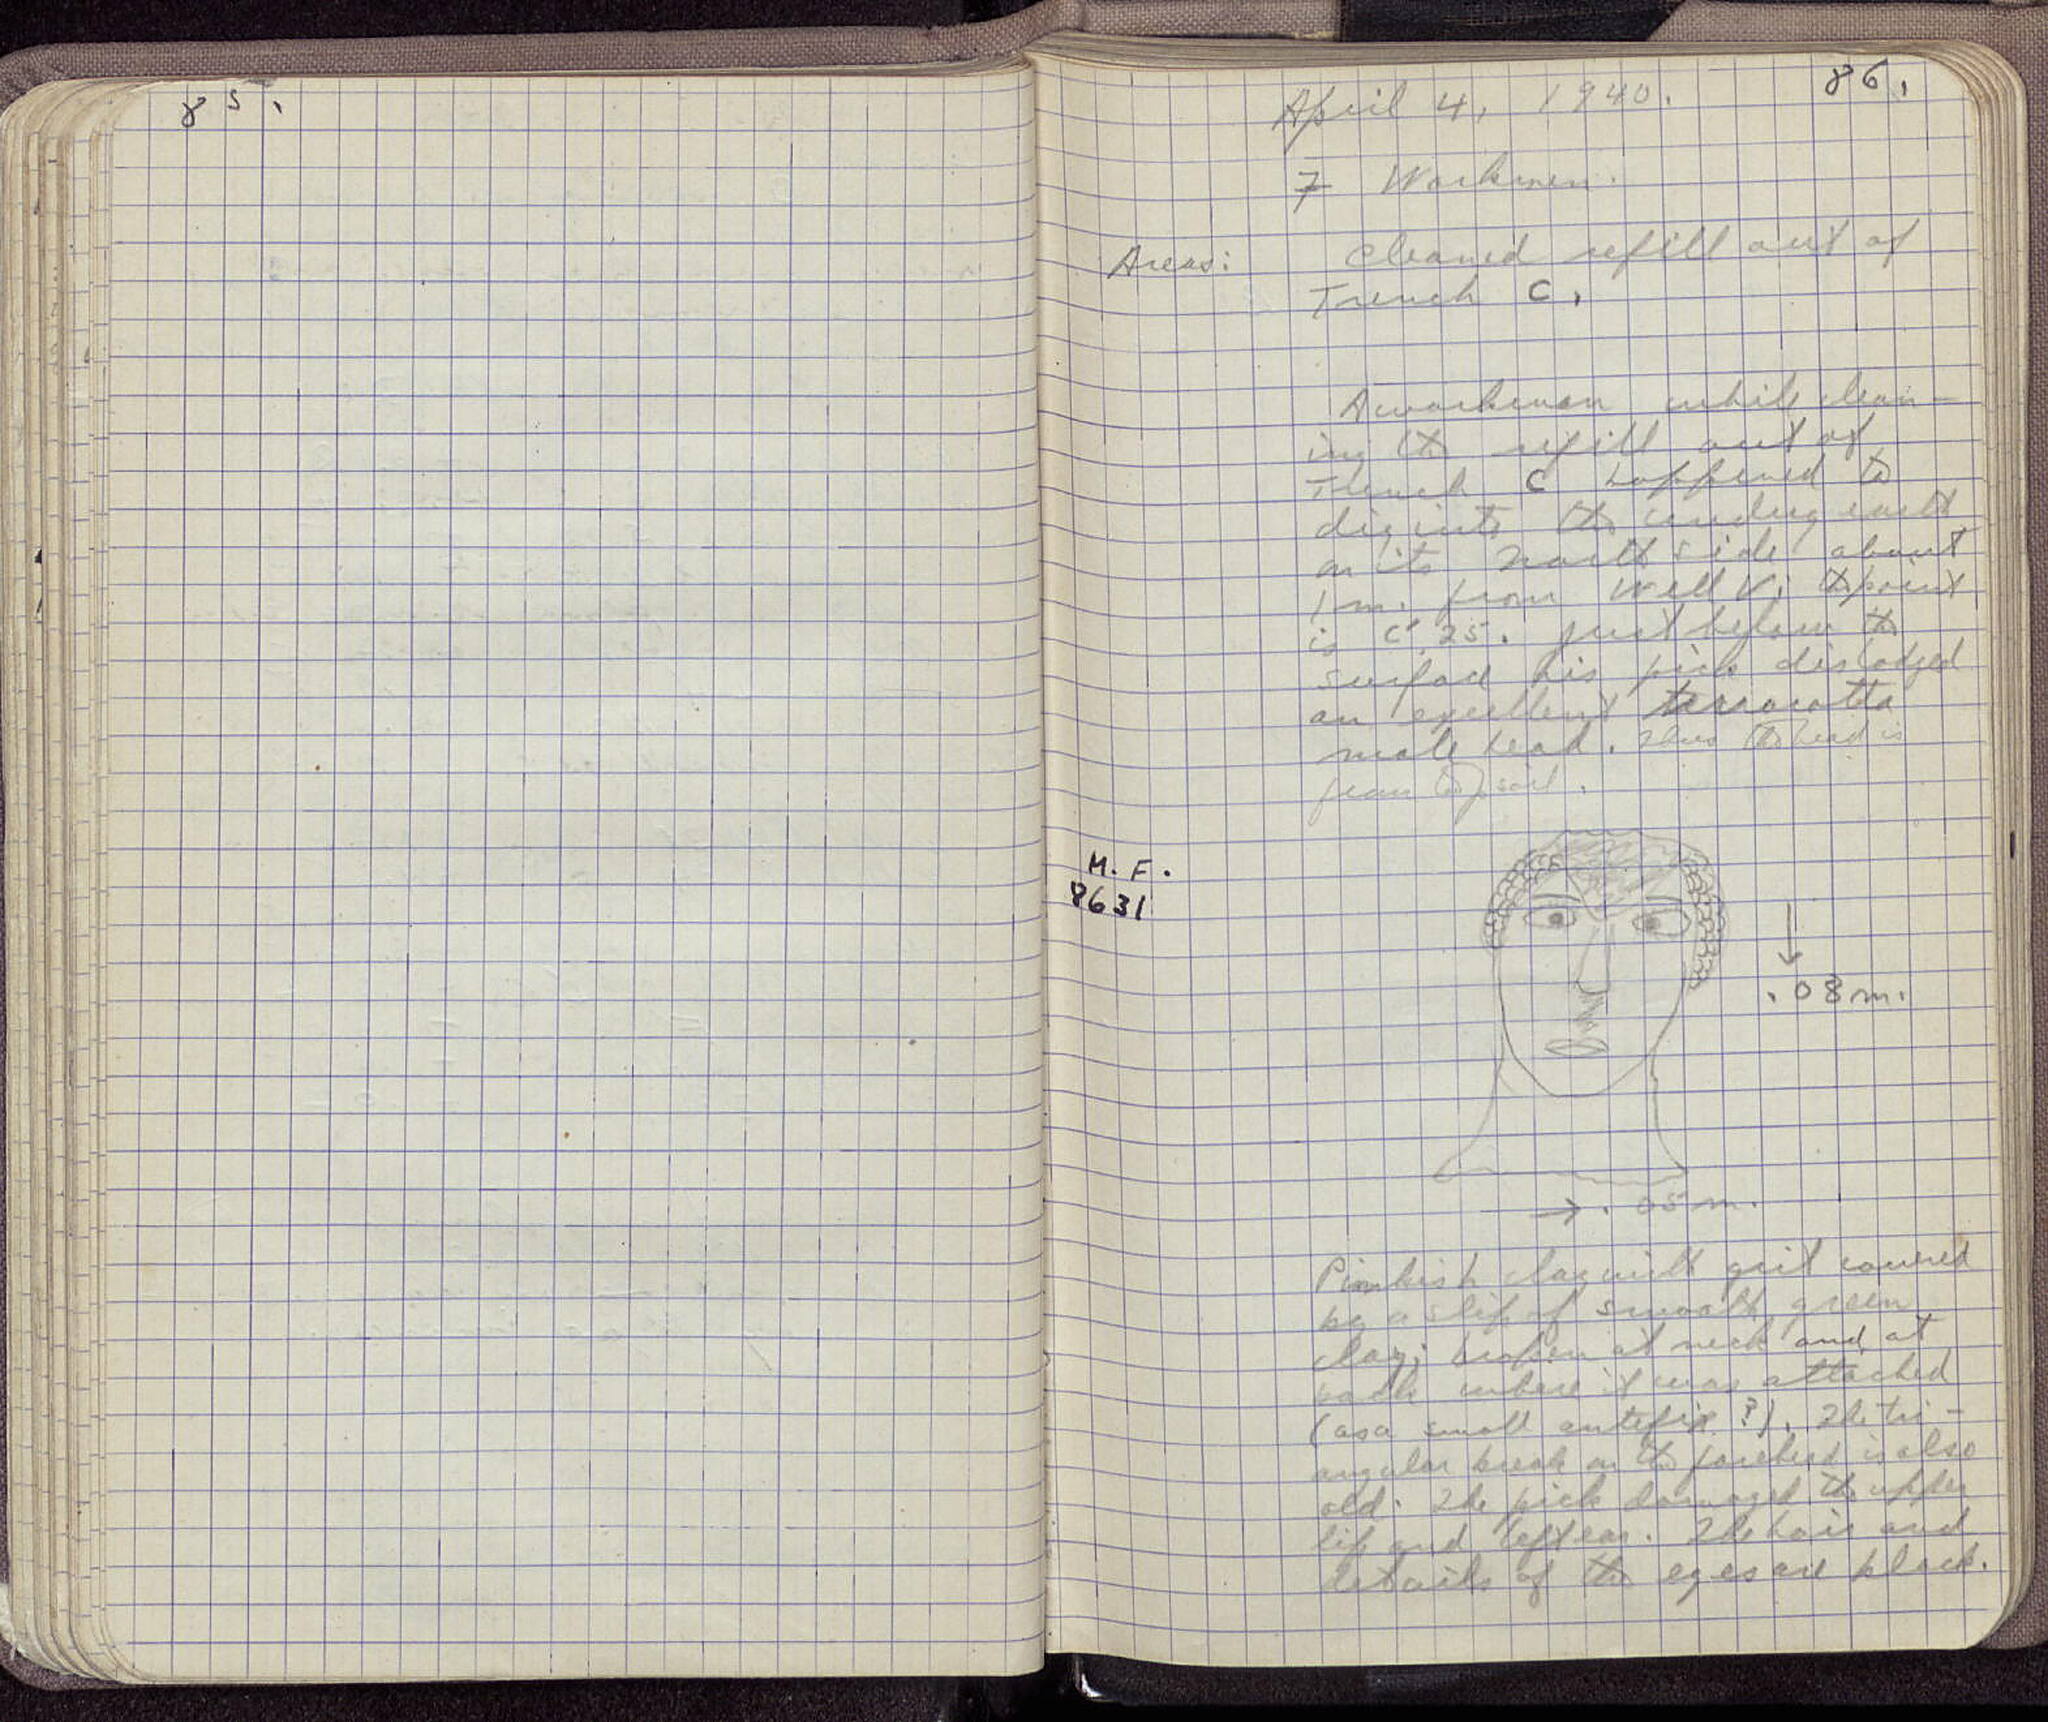 85.
86.
April 4, 1940.
7 Workmen.
Areas: Cleaned refill out of
Trench C.
A workman while clean-
ing the refill out of
Trench C happened to
dig into the underg earth
on its north side about
1 m. from Well V; the point
is C' 25. Just below the
surface his pick dislodged
an excellent terracotta
male head. Thus the head is
from the soil.
M.F.
8631
.08 m.
→ .05 m.
Pinkish clay with grit covered
by a slip of smooth green
clay; broken at neck and at
back where it was attached
(as a small antefix?). The tri-
angular break on the forehead is also
old. The pick damaged the upper
lip and left ear. The hair and
details of the eyes are black.